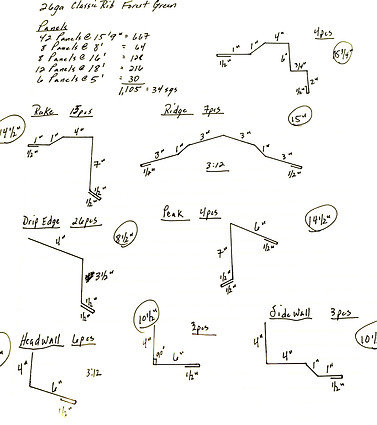 26ga Classic Rib Forest Green
Panels
42 Panels @ 15'9" = 667
8 Panels @ 8' = 64
8 Panels @ 16' = 128
12 Panels @ 18' = 216
6 Panels @ 5' = 30
1,105 = 34 sqs
4pcs
1" 1" 4"
1/2" 6" 3/4" 2" 1/2"
Rake 15pcs
14 1/2"
1" 1" 4"
1/2" 7" 1/2" 1/2"
Ridge 7pcs
15"
3" 1" 3" 3" 1" 3"
1/2" 3:12 1/2"
Drip Edge 26pcs
8 1/2"
4"
3 1/2"
1/2"
1/2"
Peak 4pcs
14 1/2"
6"
7" 1/2"
1/2"
1/2"
Headwall 6pcs
4" 3:12
6"
1/2"
10 1/2" 2pcs
4" 90° 6"
1/2"
Sidewall 3pcs
4" 4" 1" 1"
1/2"